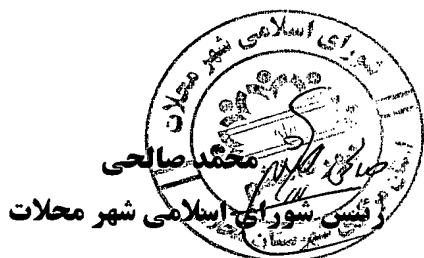 شورای اسلامی شهر محلات
محمّد صالحی
رئیس شورای اسلامی شهر محلات